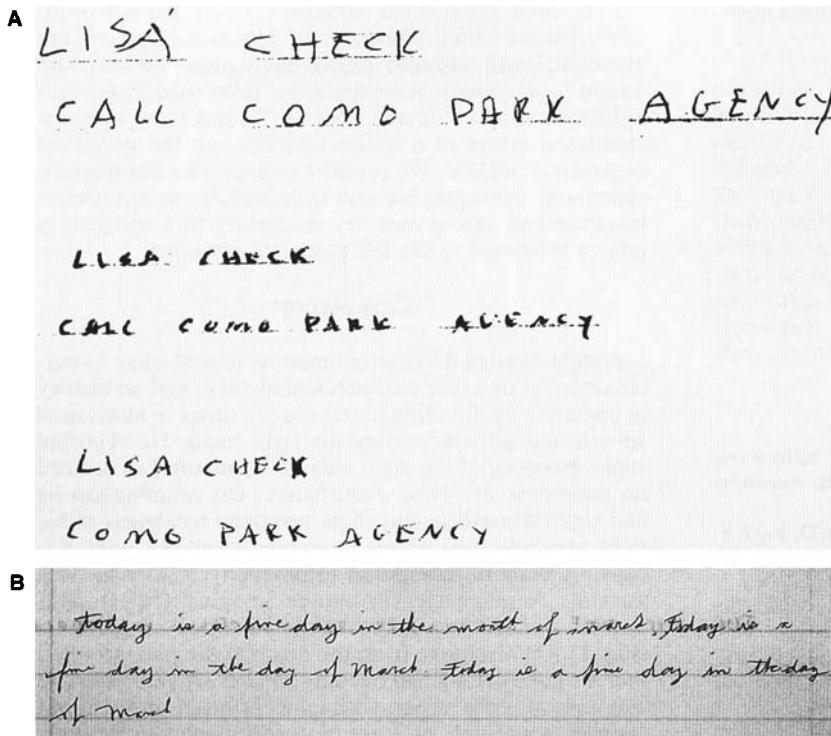 A
LISA CHECK
CALL COMO PARK AGENCY
LISA CHECK
CALL COMO PARK AGENCY
LISA CHECK
COMO PARK AGENCY
B
today is a fine day in the month of march. Today is a
fine day in the day of March. Today is a fine day in the day
of March